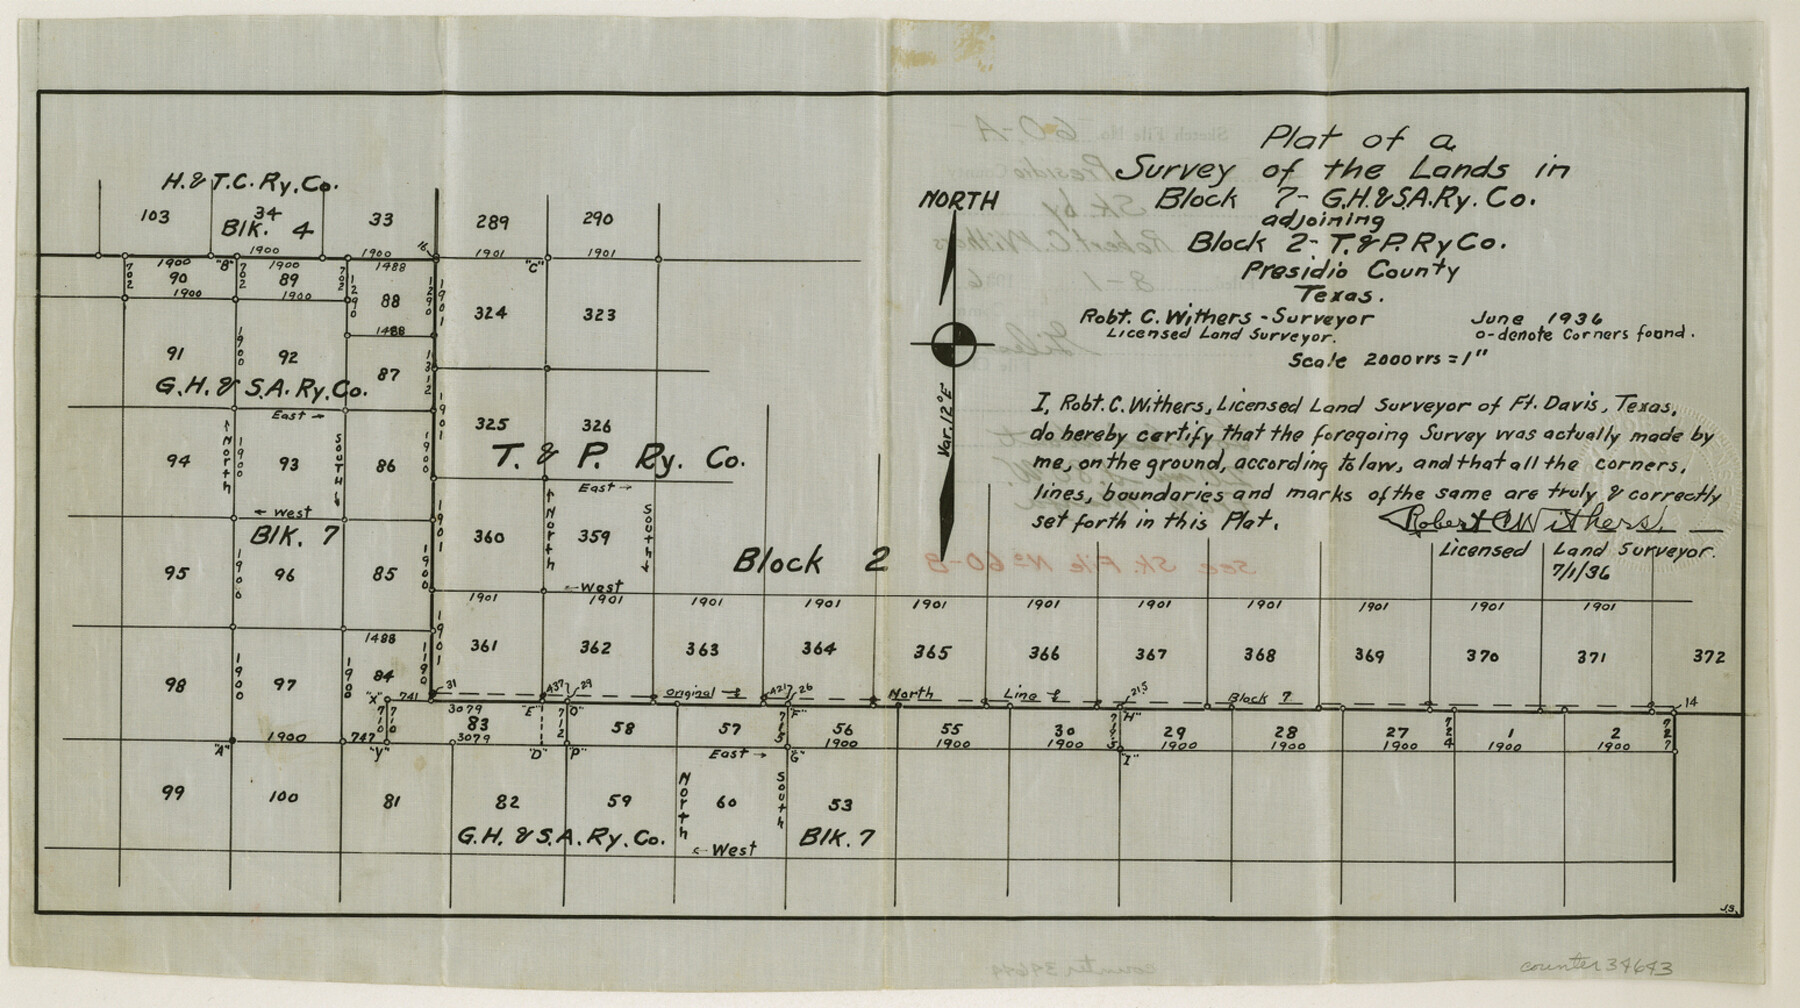 Plat of a
Survey of the Lands in
Block 7- G.H.&S.A.Ry.Co.
adjoining
Block 2- T.&P.RyCo.
Presidio County
Texas.
Robt. C. Withers - Surveyor
Licensed Land Surveyor.
June 1936
o-denote Corners found.
Scale 2000vrs = 1"
I, Robt. C. Withers, Licensed Land Surveyor of Ft. Davis, Texas,
do hereby certify that the foregoing Survey was actually made by
me, on the ground, according to law, and that all the corners,
lines, boundaries and marks of the same are truly & correctly
set forth in this Plat.
Robert C Withers.
Licensed Land Surveyor.
7/1/36
NORTH
Var. 12°E
H.&T.C.Ry.Co.
103 34 33 289 290
Blk. 4
1900 1900 16 1901 "C" 1901
1900 "B" 1900 1488
702 90 702 89 702 1290 88 1290 1901 324 323
1900 1900
1488
91 1900 92 87 1312
G.H.&S.A.Ry.Co.
East →
1901 325 326
T. & P. Ry. Co.
94 North 1900 93 South 86 1900
← West
East →
Blk. 7
1901 360 North 359 South
Block 2
95 1900 96 85 1900
← West
1901 1901 1901 1901 1901 1901 1901 1901 1901 1901 1901
1488
1901 361 362 363 364 365 366 367 368 369 370 371 372
98 1900 97 1900 84 1190
"X" 741 31 A37 29 original A217 26 North Line Block 7 14
3079 "E" "O" "F" 215 "H"
710 710 83 712 58 57 715 56 55 30 719.5 29 28 27 724 1 2 727
"A" 1900 747 "Y" 3079 "D" "P" East → "G" 1900 1900 1900 "I" 1900 1900 1900 1900 1900
99 100 81 82 59 North 60 South 53
G.H.&S.A.Ry.Co. Blk. 7
← West
J.S.
counter 34643